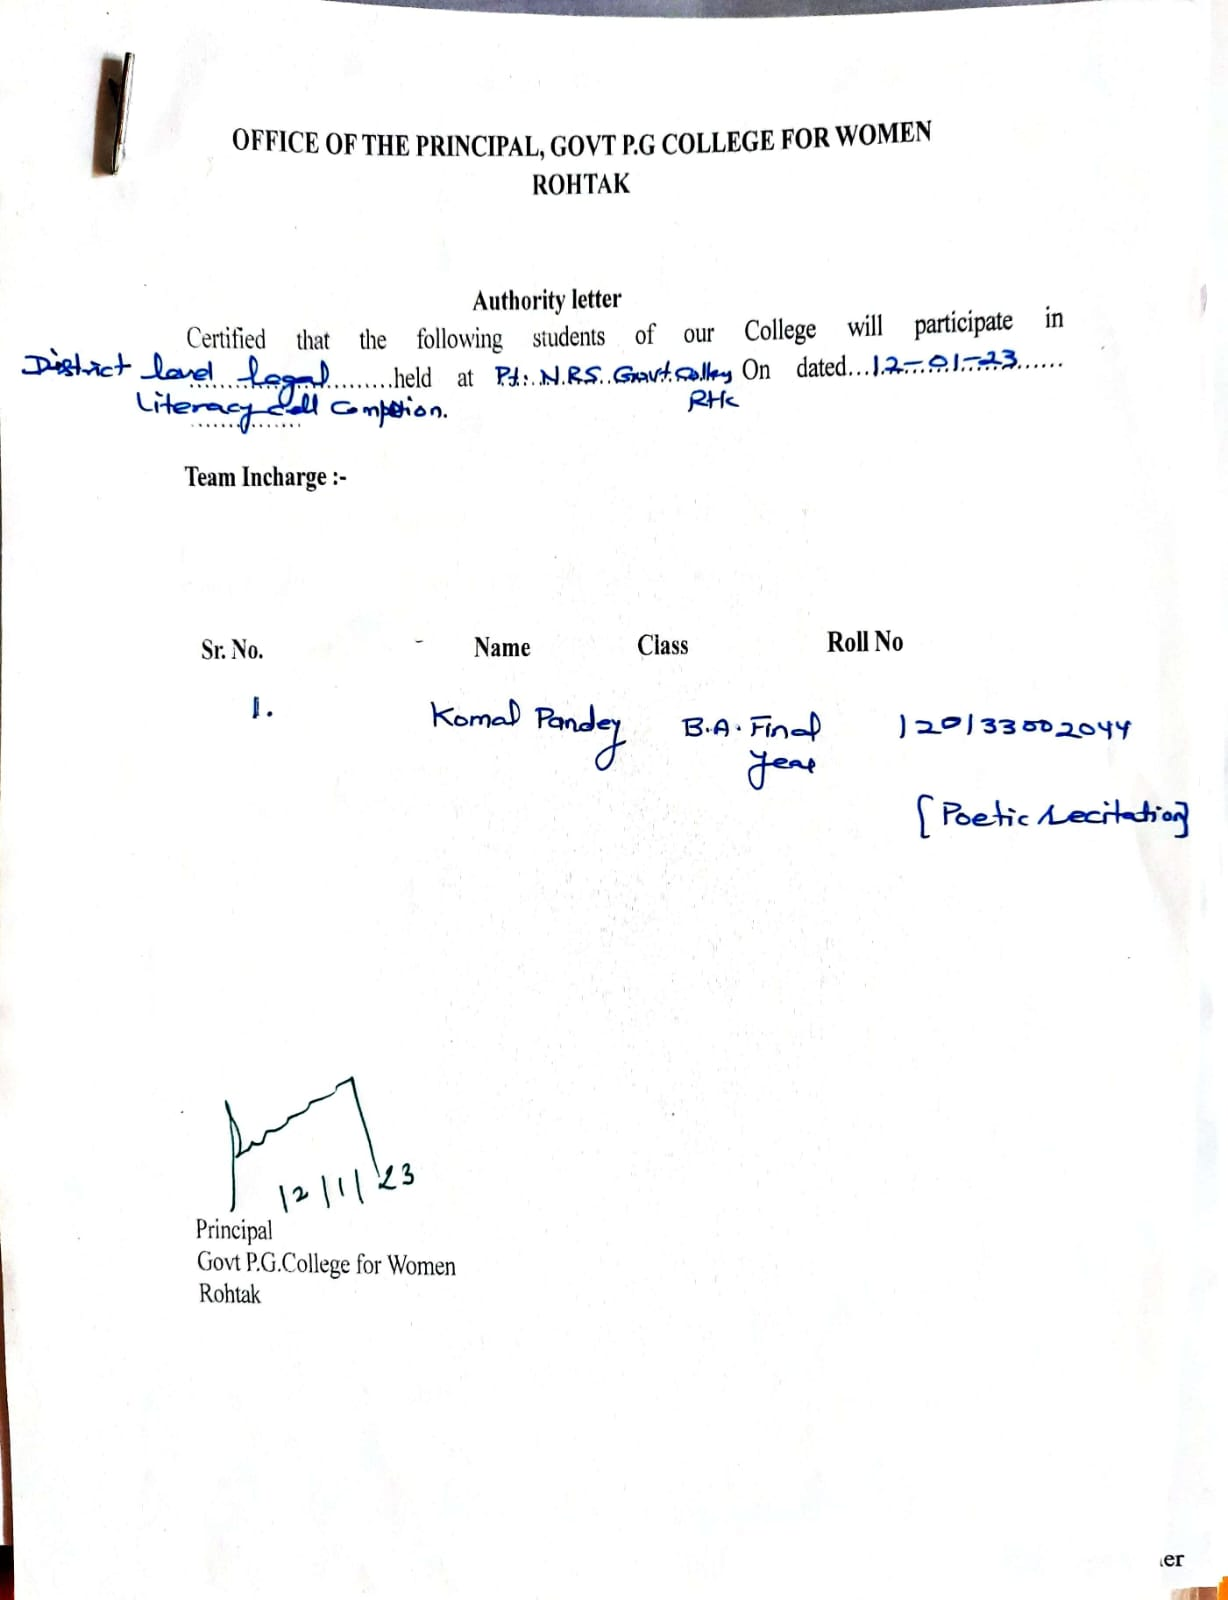 OFFICE OF THE PRINCIPAL, GOVT P.G COLLEGE FOR WOMEN
ROHTAK
Authority letter
Certified that the following students of our College will participate in
District level Legal.........held at Pt. N.R.S. Govt. College On dated...12-01-23......
Literacy Cell Comption. RHK
Team Incharge :-
Sr. No. Name Class Roll No
1. Komal Pandey B.A. Final 120133002044
Year
[Poetic recitation]
12/1/23
Principal
Govt P.G.College for Women
Rohtak
er